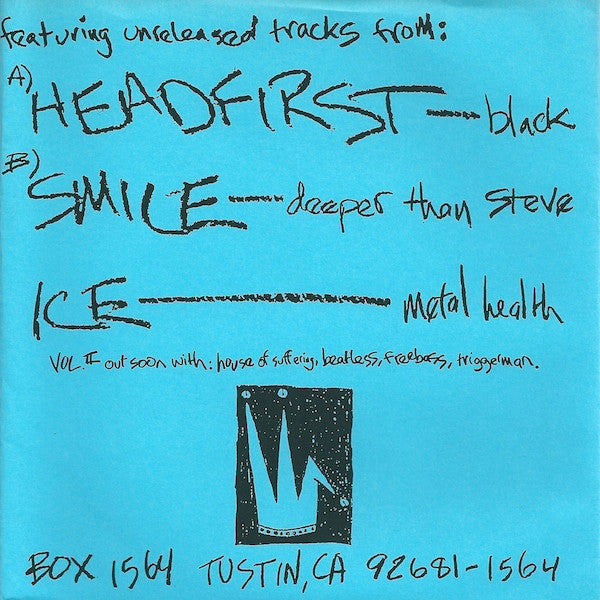 featuring unreleased tracks from:
A) HEADFIRST — black
B) SMILE — deeper than steve
ICE — metal health
VOL. II out soon with: house of suffering, beatless, freebass, triggerman.
BOX 1564 TUSTIN, CA 92681-1564